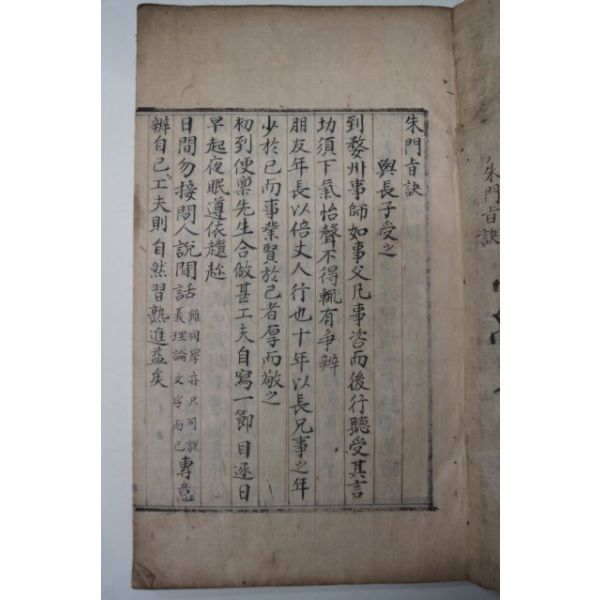 朱門旨訣
與長子受之
到婺州事師如事父凡事咨而後行聽受其言
切須下氣怡聲不得輒有爭辨
朋友年長以倍丈人行也十年以長兄事之年
少於己而事業賢於己者厚而敬之
初到便稟先生合做甚工夫自寫一節目逐日
早起夜眠遵依趲趁
日間勿接閒人說閒話雖同學亦只可說義理論文字而已專意
辦自己工夫則自然習熟進益矣
朱門旨訣